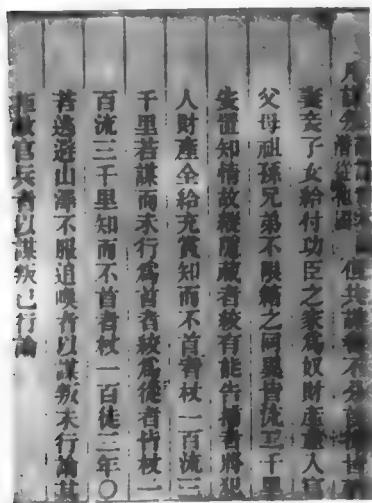 潛從他國 但共謀者不分首從皆斬
妻妾子女給付功臣之家爲奴財產並入官
父母祖孫兄弟不限籍之同異皆流二千里
安置知情故縱隱藏者絞有能告捕者將犯
人財產全給充賞知而不首者杖一百流三
千里若謀而未行爲首者絞爲從者皆杖一
百流三千里知而不首者杖一百徒三年〇
若逃避山澤不服追喚者以謀叛未行論其
拒敵官兵者以謀叛已行論